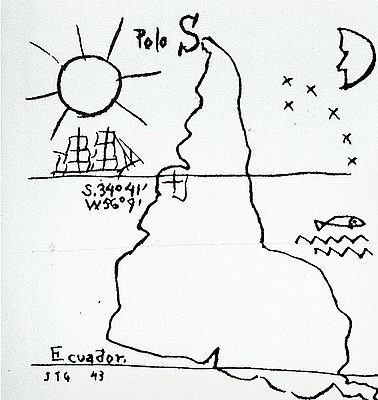 Polo S
S. 34° 41'
W 56° 9'
Ecuador.
JTG 43